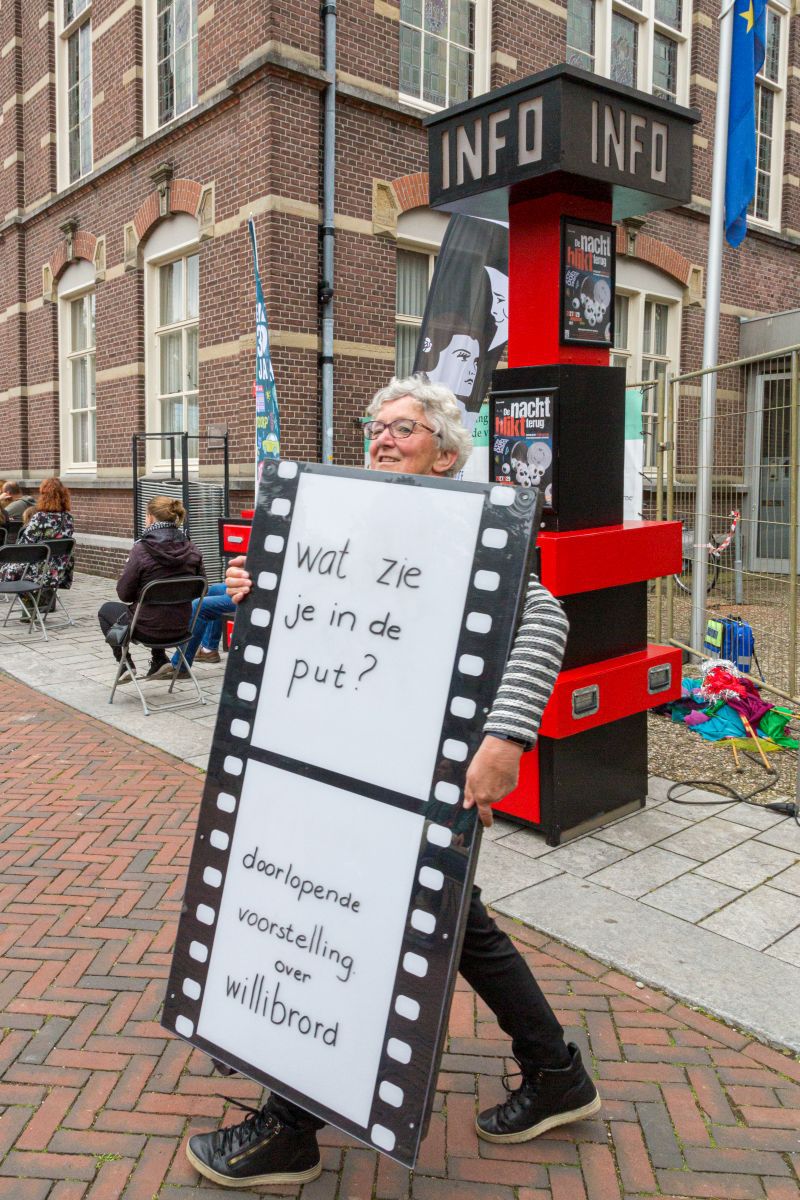 INFO INFO
De nacht
blikt terug
De nacht
blikt terug
wat zie
je in de
put?
doorlopende
voorstelling.
over
willibrord